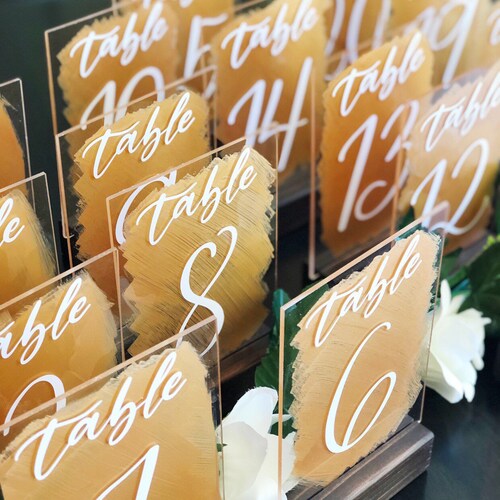 table
10
table
5
table
14
table
13
table
12
table
table
8
table
6
table
table
table